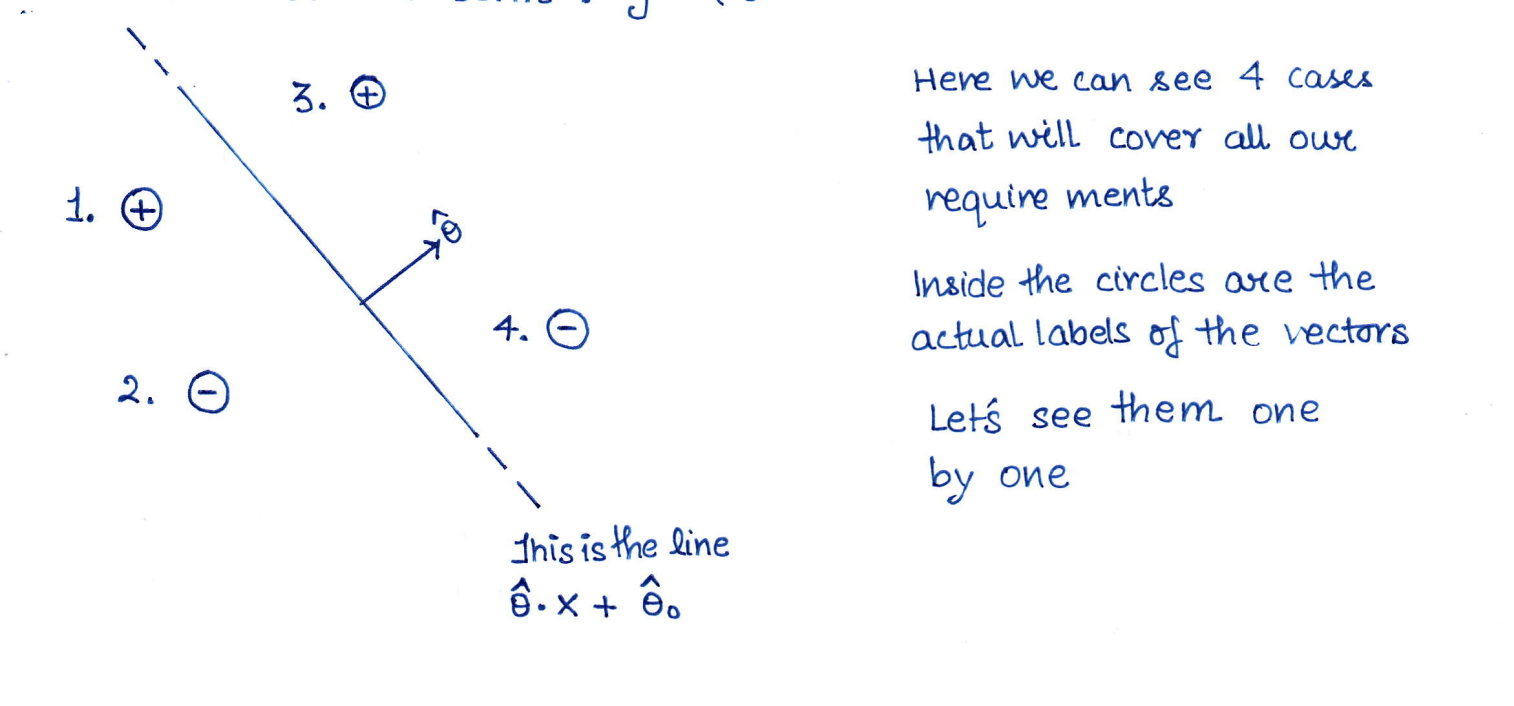 3. +
1. +
θ̂
4. -
2. -
This is the line
θ̂ . x + θ̂₀
Here we can see 4 cases
that will cover all our
require ments
Inside the circles are the
actual labels of the vectors
Let's see them one
by one